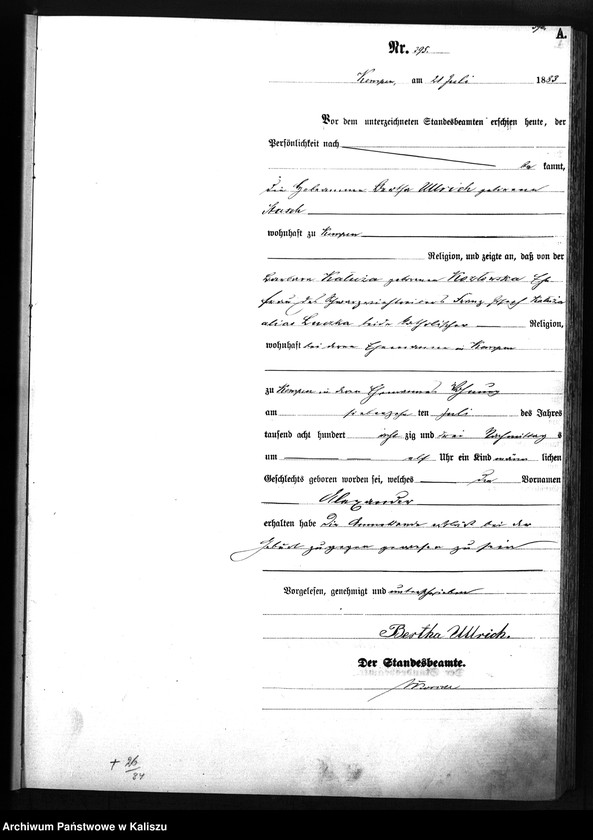 A.
Nr. 295.
Kempen, am 21 Juli 1883
Vor dem unterzeichneten Standesbeamten erschien heute, der
Persönlichkeit nach
be kannt,
die Hebamme Bertha Ullrich geborene
wohnhaft zu Kempen
Religion, und zeigte an, daß von der
Barbara Kaluza geborenen Kozlowska Ehe
frau des Franz Kaluza
alias beide katholischer Religion,
wohnhaft bei ihrem Ehemanne in Kempen
zu Kempen in ihres Ehemannes Wohnung
am siebenzehn ten Juli des Jahres
tausend acht hundert acht zig und drei Nachmittag s
um elf Uhr ein Kind männ lichen
Geschlechts geboren worden sei, welches den Vornamen
Alexander
erhalten habe Die bei der
Geburt zugegen gewesen zu sein
Vorgelesen, genehmigt und unterschrieben
Bertha Ullrich.
Der Standesbeamte.
† 2/6
84
Archiwum Państwowe w Kaliszu